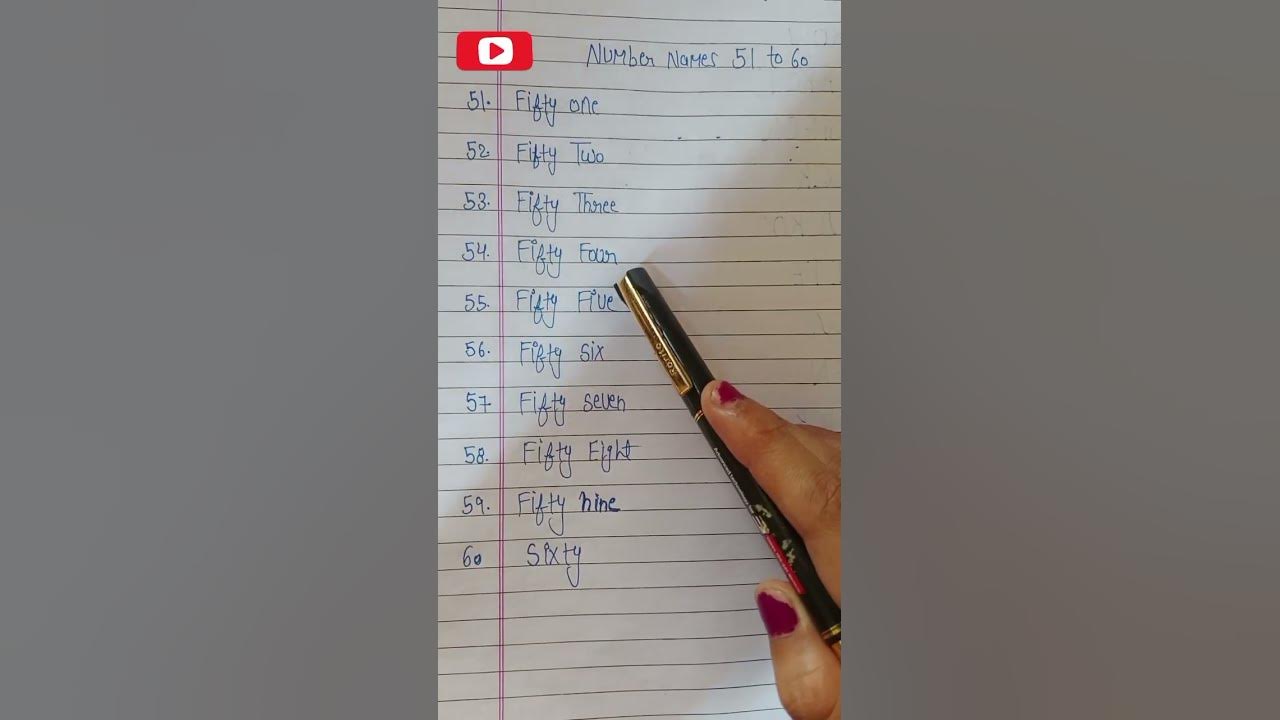 Number Names 51 to 60
51. Fifty one
52. Fifty Two
53. Fifty Three
54. Fifty Four
55. Fifty Five
56. Fifty six
57 Fifty seven
58. Fifty Eight
59. Fifty nine
60 Sixty